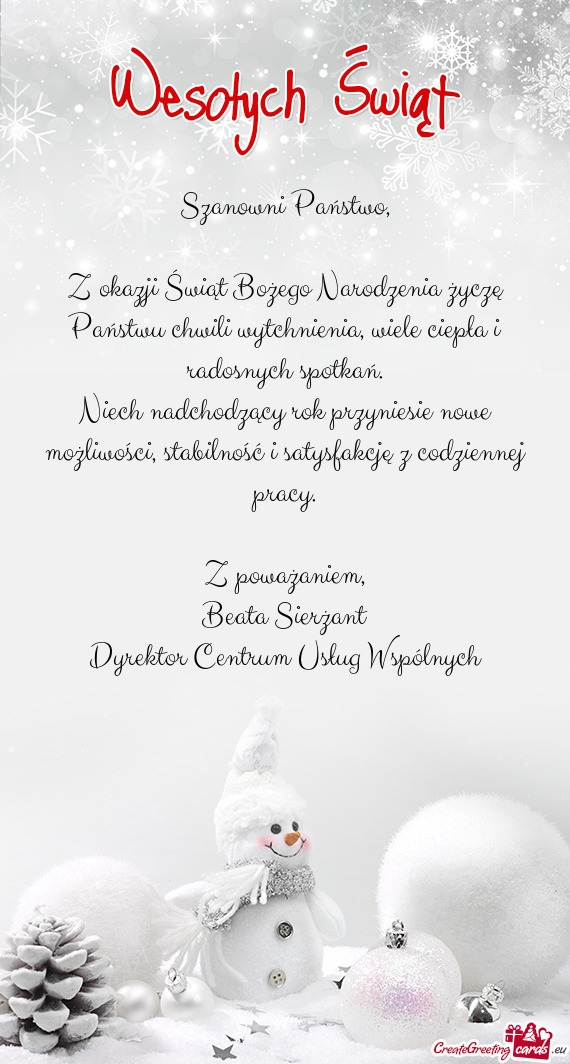 Wesołych Świąt
Szanowni Państwo,
Z okazji Świąt Bożego Narodzenia życzę
Państwu chwili wytchnienia, wiele ciepła i
radosnych spotkań.
Niech nadchodzący rok przyniesie nowe
możliwości, stabilność i satysfakcję z codziennej
pracy.
Z poważaniem,
Beata Sierżant
Dyrektor Centrum Usług Wspólnych
CreateGreetingcards.eu